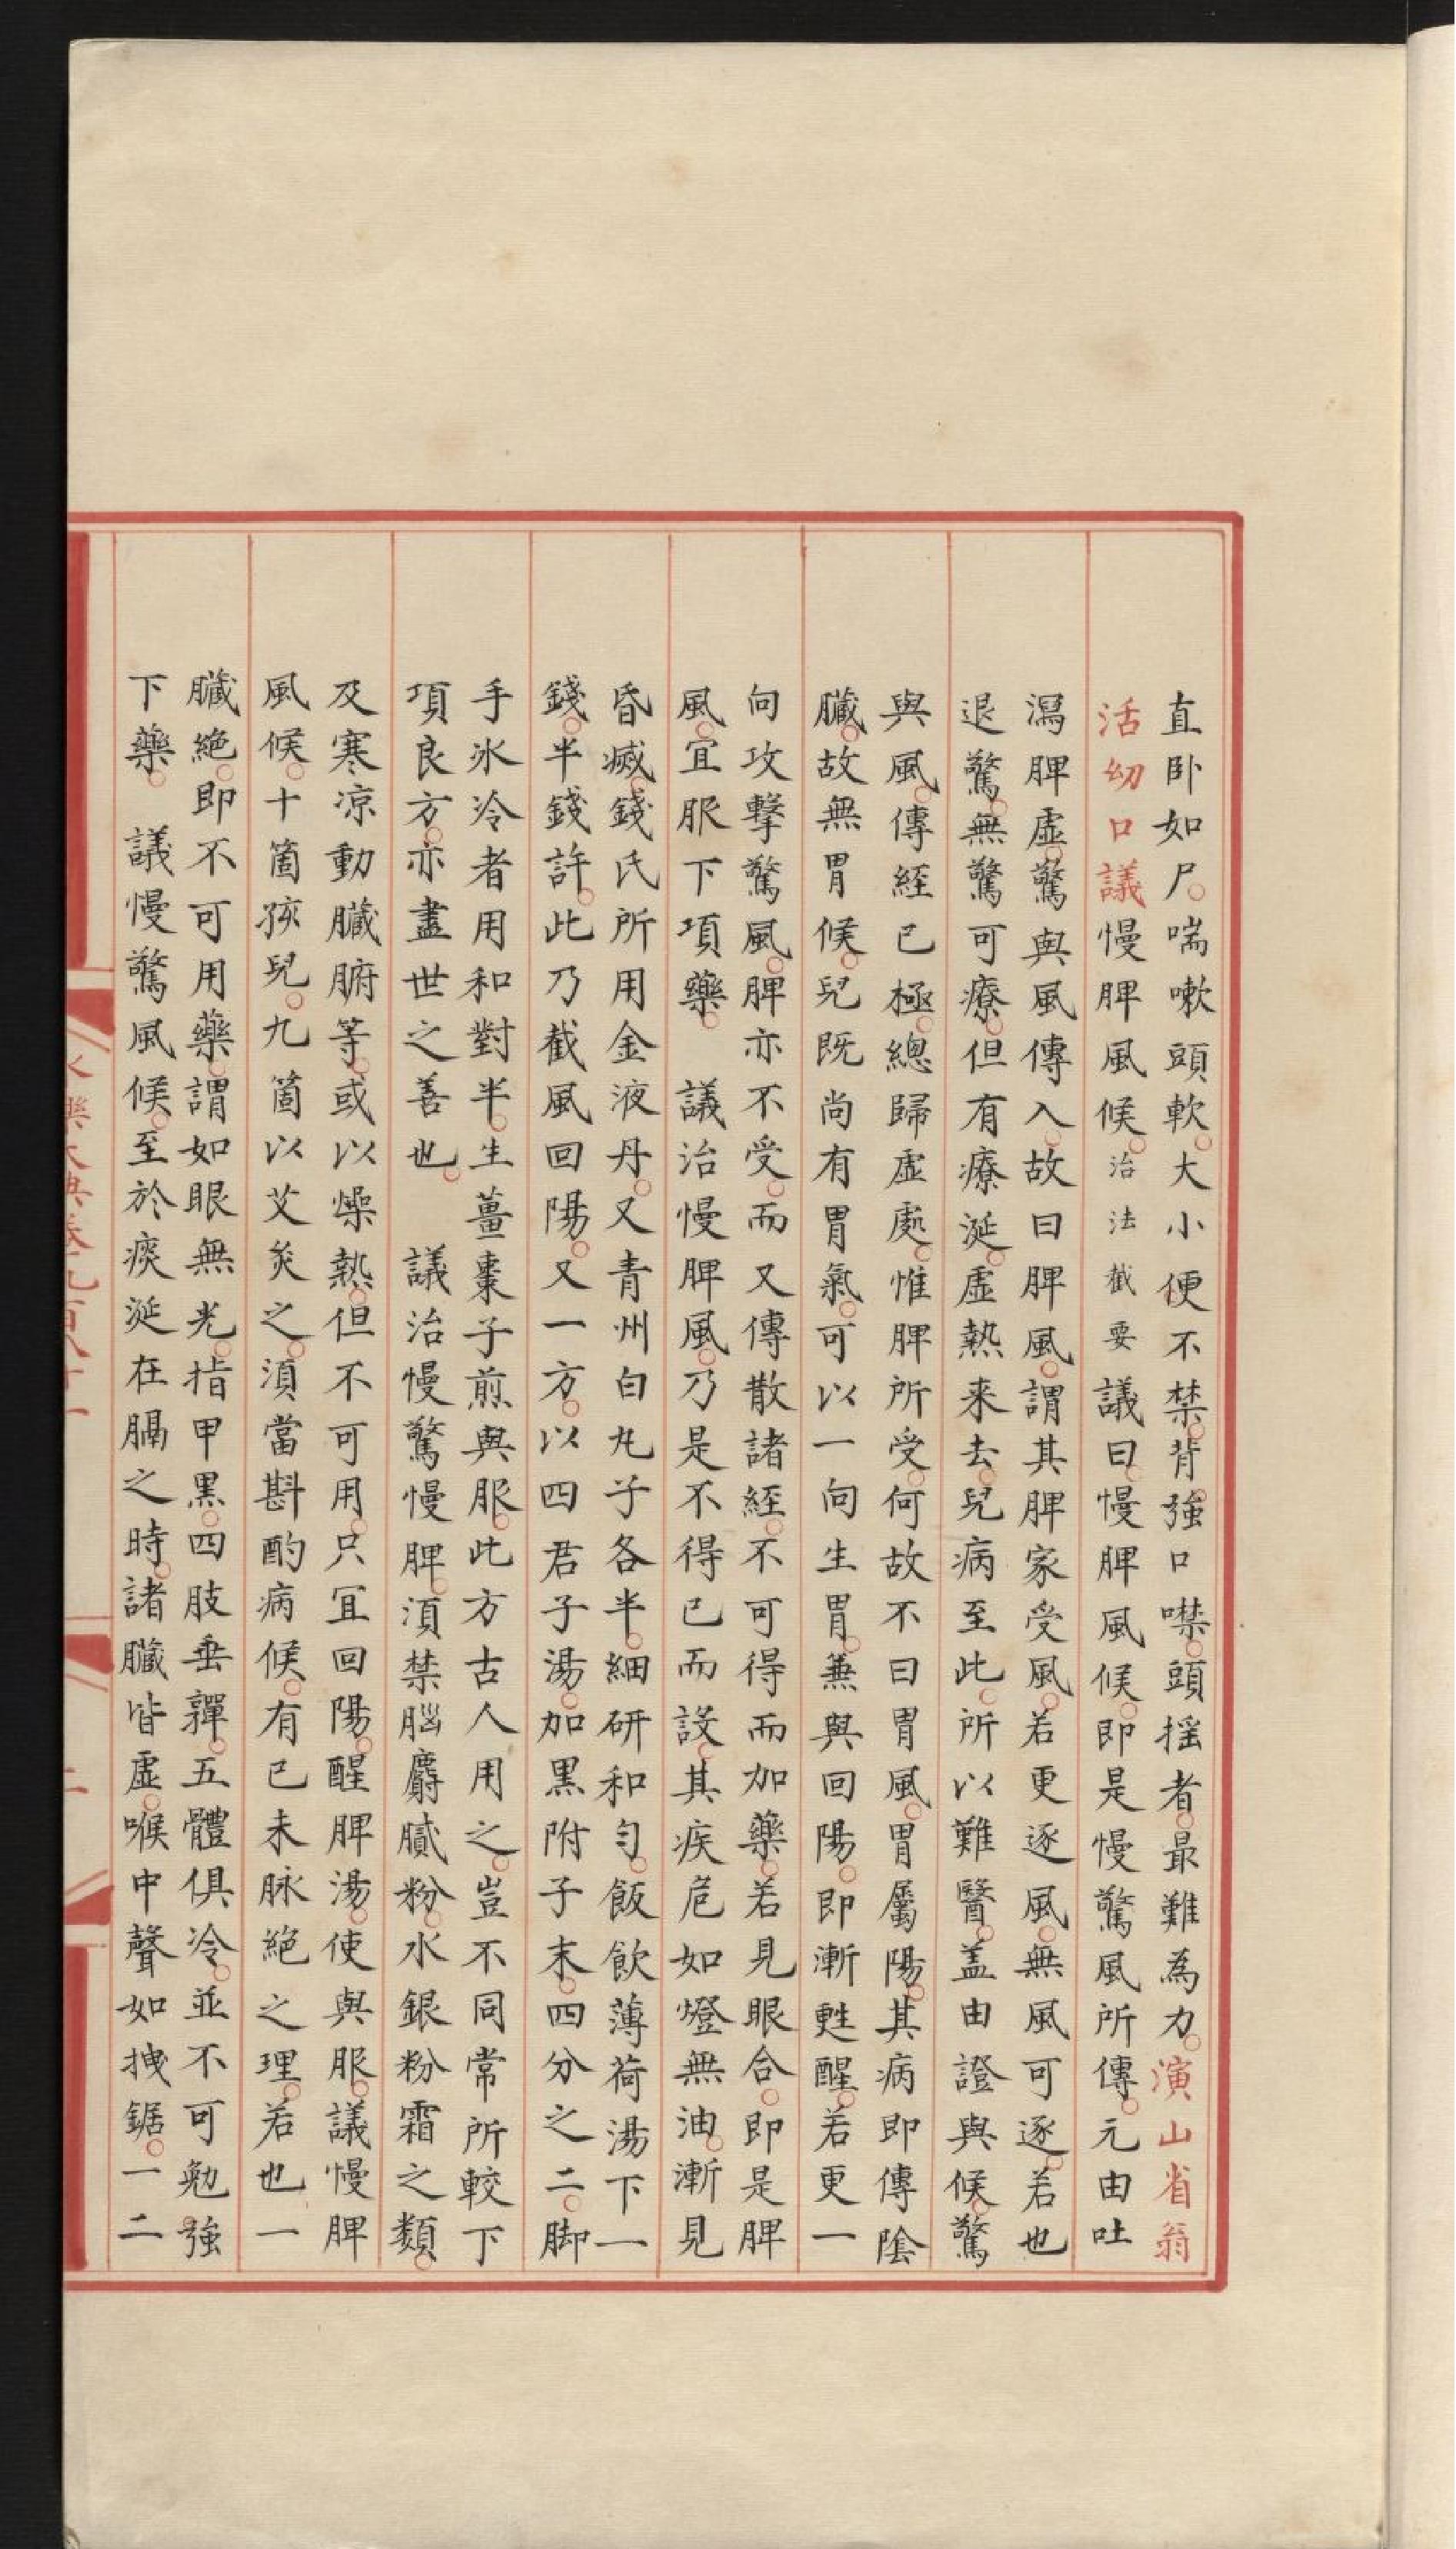 直卧如尸。喘嗽頭軟。大小便不禁。背強口噤。頭揺者。最難為力。演山省翁
活幼口議慢脾風候。治法截要議曰。慢脾風候。即是慢驚風所傳。元由吐
瀉脾虛。驚與風傳入。故曰脾風。謂其脾家受風。若更逐風。無風可逐。若也
退驚。無驚可療。但有療涎。虛熱来去。兒病至此。所以難醫。盖由證與候。驚
與風。傳經已極。總歸虛處。惟脾所受。何故不曰胃風。胃屬陽。其病即傳陰
臟。故無胃候。兒既尚有胃氣。可以一向生胃。蕪與回陽。即漸甦醒。若更一
向攻擊驚風。脾亦不受。而又傳散諸經。不可得而加藥。若見眼合。即是脾
風。宜服下項藥。 議治慢脾風。乃是不得已而設。其疾危如燈無油。漸見
昏滅。錢氏所用金液丹。又青州白丸子各半。細研和勻。飯飲薄荷湯下一
錢。半錢許。此乃截風回陽。又一方。以四君子湯。加黑附子末。四分之二。脚
手氷冷者用和對半。生薑棗子煎與服。此方古人用之。豈不同常所較下
項良方。亦盡世之善也。 議治慢驚慢脾。湏禁腦麝膩粉。水銀粉霜之類。
及寒凉動臟腑等。或以燥熱。但不可用。只宜回陽。醒脾湯。使與服。議慢脾
風候。十箇孩兒。九箇以艾炙之。湏當斟酌病候。有已未脉絕之理。若也一
臟絕。即不可用藥。謂如眼無光。指甲黑。四肢垂嚲。五體俱冷。並不可勉強
下藥。 議慢驚風候。至於痰涎在膈之時。諸臟皆虛。喉中聲如拽鋸。一二